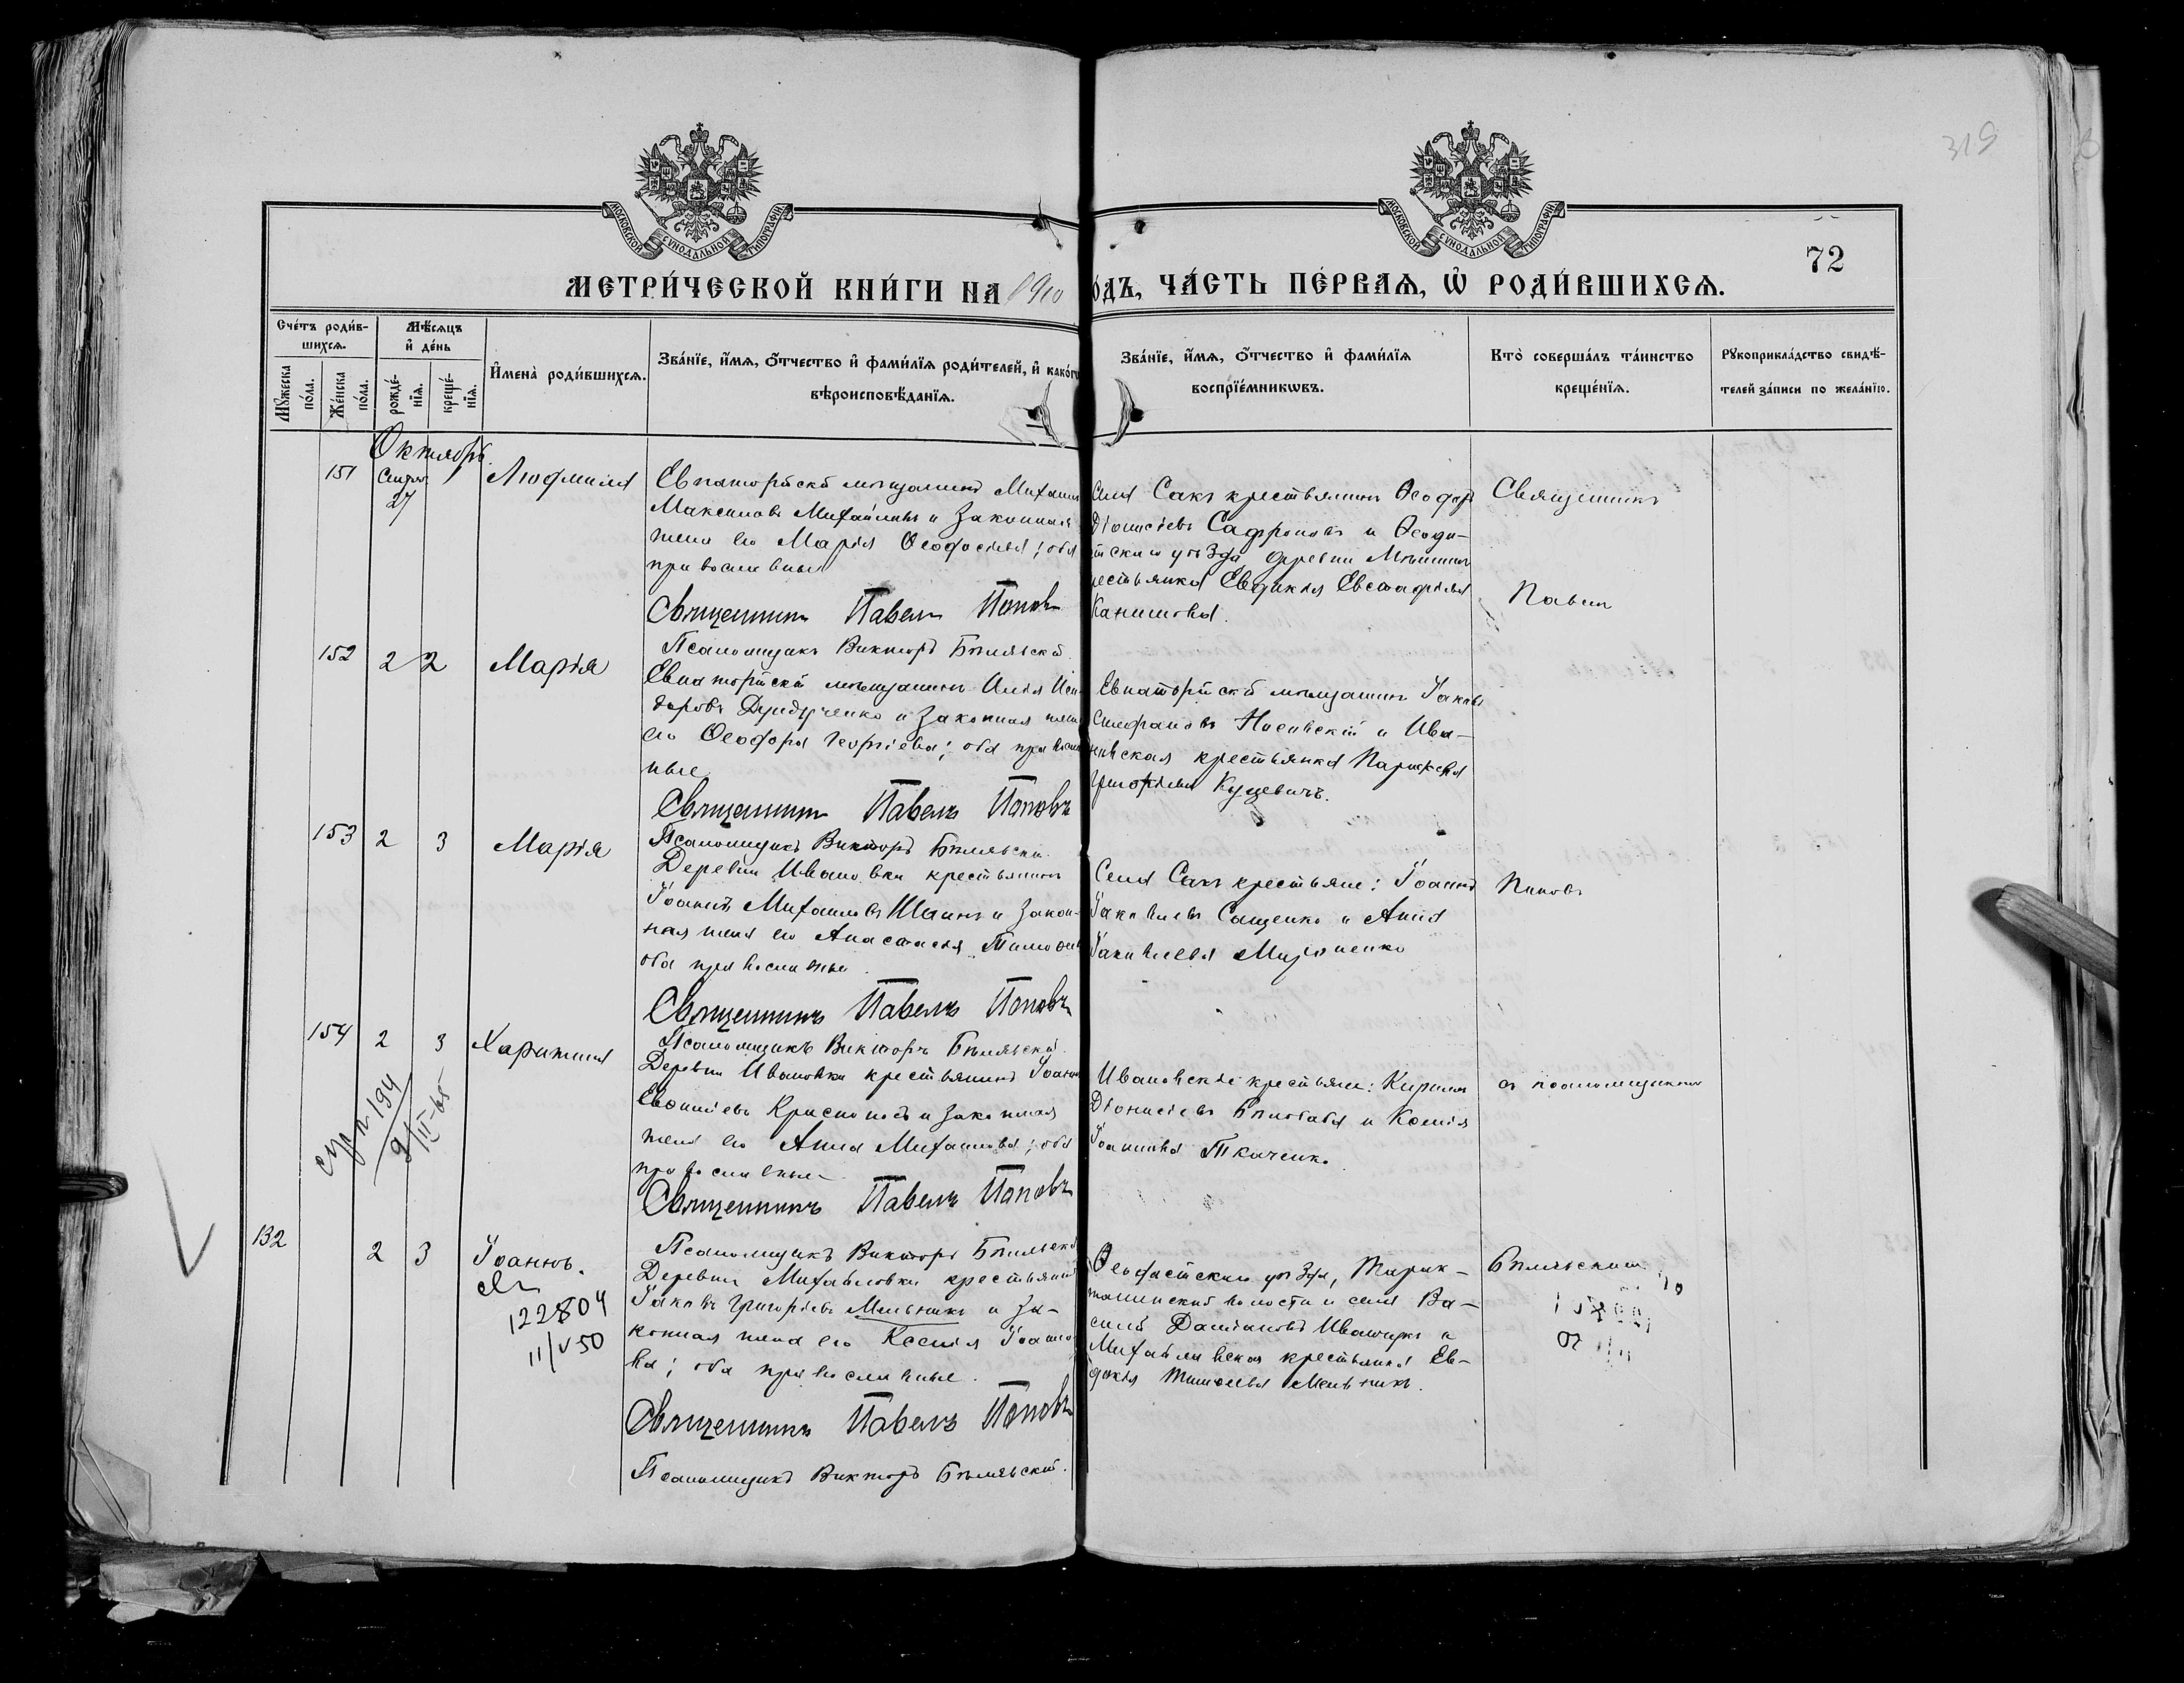 319
МОСКОВСКОЙ СѴНОДАЛЬНОЙ ТИПОГРАФІИ
МОСКОВСКОЙ СѴНОДАЛЬНОЙ ТИПОГРАФІИ
72
МЕТРИ́ЧЕСКОЙ КНИ́ГИ НА 1910
ОДЪ, ЧА́СТЬ ПЕ́РВАѦ, Ѡ҆ РОДИ́ВШИХСѦ.
Сче́тъ роди́в-
шихсѧ.
Мꙋжеска по́ла.
Же́нска по́ла.
Мѣ́сѧцъ
и҆ де́нь
рожде́-
нїѧ.
креще́-
нїѧ.
И҆мена̀ роди́вшихсѧ.
Зва́нїе, и҆́мѧ, ѻ҆́тчество и҆ фами́лїѧ роди́телей, и҆ како́гѡ
вѣроисповѣ́данїѧ.
Зва́нїе, и҆́мѧ, ѻ҆́тчество и҆ фами́лїѧ
воспрїе́мникѡвъ.
Кто̀ соверша́лъ та́инство
креще́нїѧ.
Рꙋкоприкла́дство свидѣ́-
телей за́писи по жела́нїю.
Октябрь.
151
Сентяб. 27
1
Людмила
Евпаторійскій мѣщанинъ Михаилъ
Максимовъ Михайловъ и законная
жена его Марія Ѳеодосіева; оба
православные
Священникъ Павелъ Поповъ
Псаломщикъ Викторъ Бѣлявскій.
Села Сакъ крестьянинъ Ѳеодоръ
Діонисіевъ Сафроновъ и Ѳеодо-
сійскаго уѣзда, деревни
крестьянка Евдокія Евстафіева
Священникъ
Павелъ
152
2
2
Марія
Евпаторійскій мѣщанинъ Илія Иси-
доровъ Дундученко и законная жена
его Ѳеодора Георгіева; оба православ
ные
Священникъ Павелъ Поповъ
Псаломщикъ Викторъ Бѣлявскій.
Евпаторійскій мѣщанинъ Іаковъ
Стефановъ Носивскій и Ива-
новская крестьянка Параскева
Григоріева Куцевичъ.
153
2
3
Марія
Деревни Ивановки крестьянинъ
Іоаннъ Михаиловъ и закон-
ная жена его Анастасія Тимоѳеева
оба православные.
Священникъ Павелъ Поповъ
Псаломщикъ Викторъ Бѣлявскій.
Села Сакъ крестьяне: Іоаннъ
Іаковлевъ Сащенко и Анна
Іаковлева Мироненко
Поповъ
154
2
3
Харитина
194
9/III-65
Деревни Ивановки крестьянинъ Іоаннъ
Евѳиміевъ Красноносъ и законная
жена его Анна Михаилова; оба
православные
Священникъ Павелъ Поповъ
Псаломщикъ Викторъ Бѣлявскій
Ивановскіе крестьяне: Кириллъ
Діонисіевъ Бѣлобаба и Ксенія
Іоаннова Ткаченко.
съ псаломщикомъ
132
2
3
Іоаннъ.
122804
11/V 50
Деревни Михайловки крестьянинъ
Іаковъ Григоріевъ Мельникъ и за-
конная жена его Ксенія Іоанно
ва; оба православные.
Священникъ Павелъ Поповъ
Псаломщикъ Викторъ Бѣлявскій.
Ѳеодосійскаго уѣзда,
волости и села Ва-
силій Даміановъ Иващукъ и
Михайловская крестьянка Ев-
докія Тимоѳеева Мельникъ.
Бѣлявскимъ